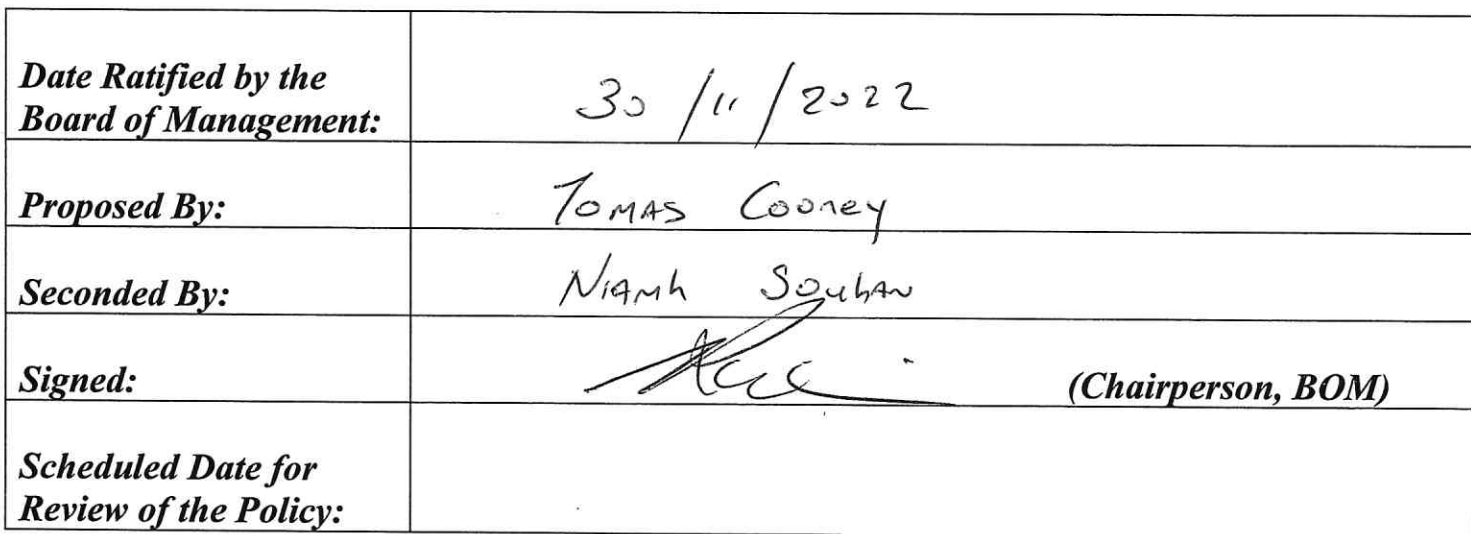 Date Ratified by the
Board of Management: 30/11/2022
Proposed By: Tomas Cooney
Seconded By: Niamh Souhan
Signed: (Chairperson, BOM)
Scheduled Date for
Review of the Policy: